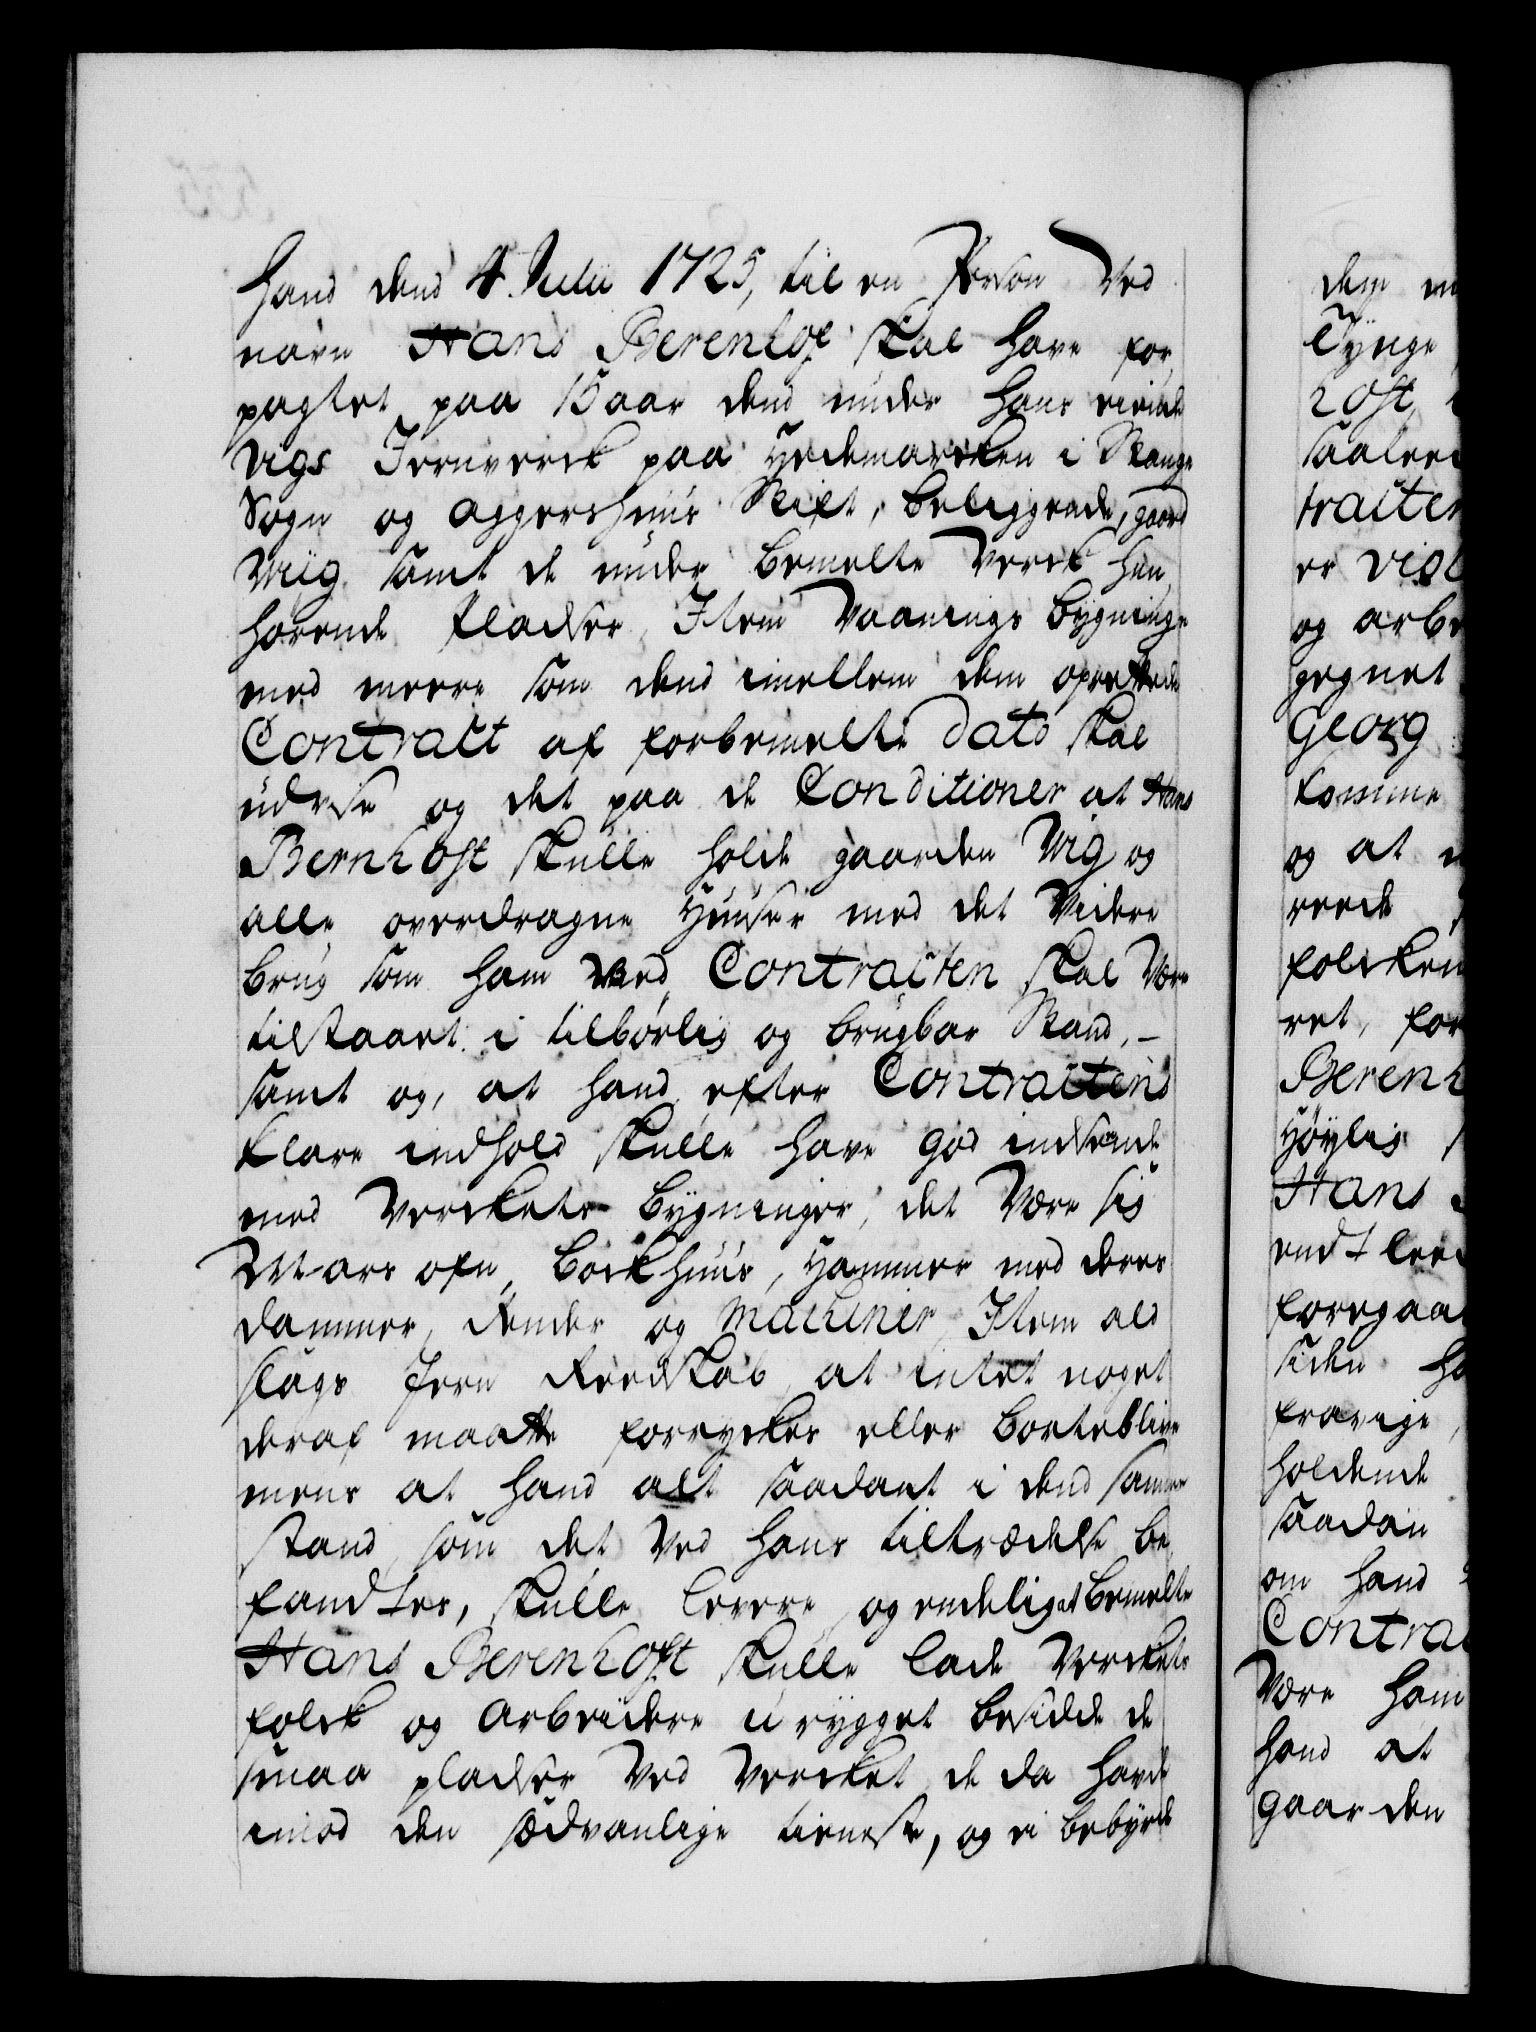 hand dend 4 Julii 1725, til en Person ved
navn Hans Berenhof skal have for
pagtet paa 15 aar dend under hans eiende
Vigs Jernverck paa Hedemarcken i Stange
Sogn og Aggershuus Stift, beliggende, gaard
Wiig samt de under bemelte Verck hen
hørende Pladser, Item Vaanings bygninge
med meere som dend imellem dem oprettede
Contract af forbemelte dato skal
udvise og det paa de Conditioner at Hans
Bernhoft skulle holde gaarden Wig og
alle overdragne Huuser med det videre
brug som ham ved Contracten skal være
tilstaaet i tilbørlig og brugbar Stand, –
samt og, at hand efter Contractens
klare indhold skulle have god indseende
med Verckets bygninger, det være sig
Mas ofn, Bockhuus, Hammer med deres
dammer, Render og Machiner, Item ald
slags Jern Reedskab, at intet noget
deraf maatte forrycker eller bortblive
mens at hand alt saadant i dend samme
stand, som det ved hans tiltrædelse be
fandtes, skulle levere, og endelig at bemelte
Hans Berenhoft skulle lade Verckets
folck og Arbeidere u rygget besidde de
smaa pladser ved Vercket de da havde
imod den sædvanlige tieneste, og ei bebyrde
dem
Tynge
hoft,
saaleed
tracten
er vist
og arbe
gegnet
Georg
komme
og at
reede
folcken
ret, for
Berenh
Høylig
Hans
endt
foregaa
siden
fravige,
holdende
saadan
om hand
Contrac
være ham
hand at
gaarden